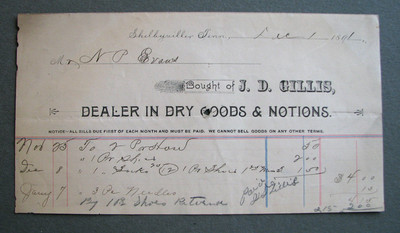 Shelbyville Tenn, Dec 1 1891
Mr N P Evans
Bought of J. D. GILLIS,
DEALER IN DRY GOODS & NOTIONS.
NOTICE—ALL BILLS DUE FIRST OF EACH MONTH AND MUST BE PAID. WE CANNOT SELL GOODS ON ANY OTHER TERMS.
Nov 25 To 2 Pr 50
" 1 Pr Shoes 2 00
Dec 8 " 1 Pr Shoes 1 50 $4 00
Jany 7 " 3 Pr Needles 10
By 1 Pr Shoes Returned